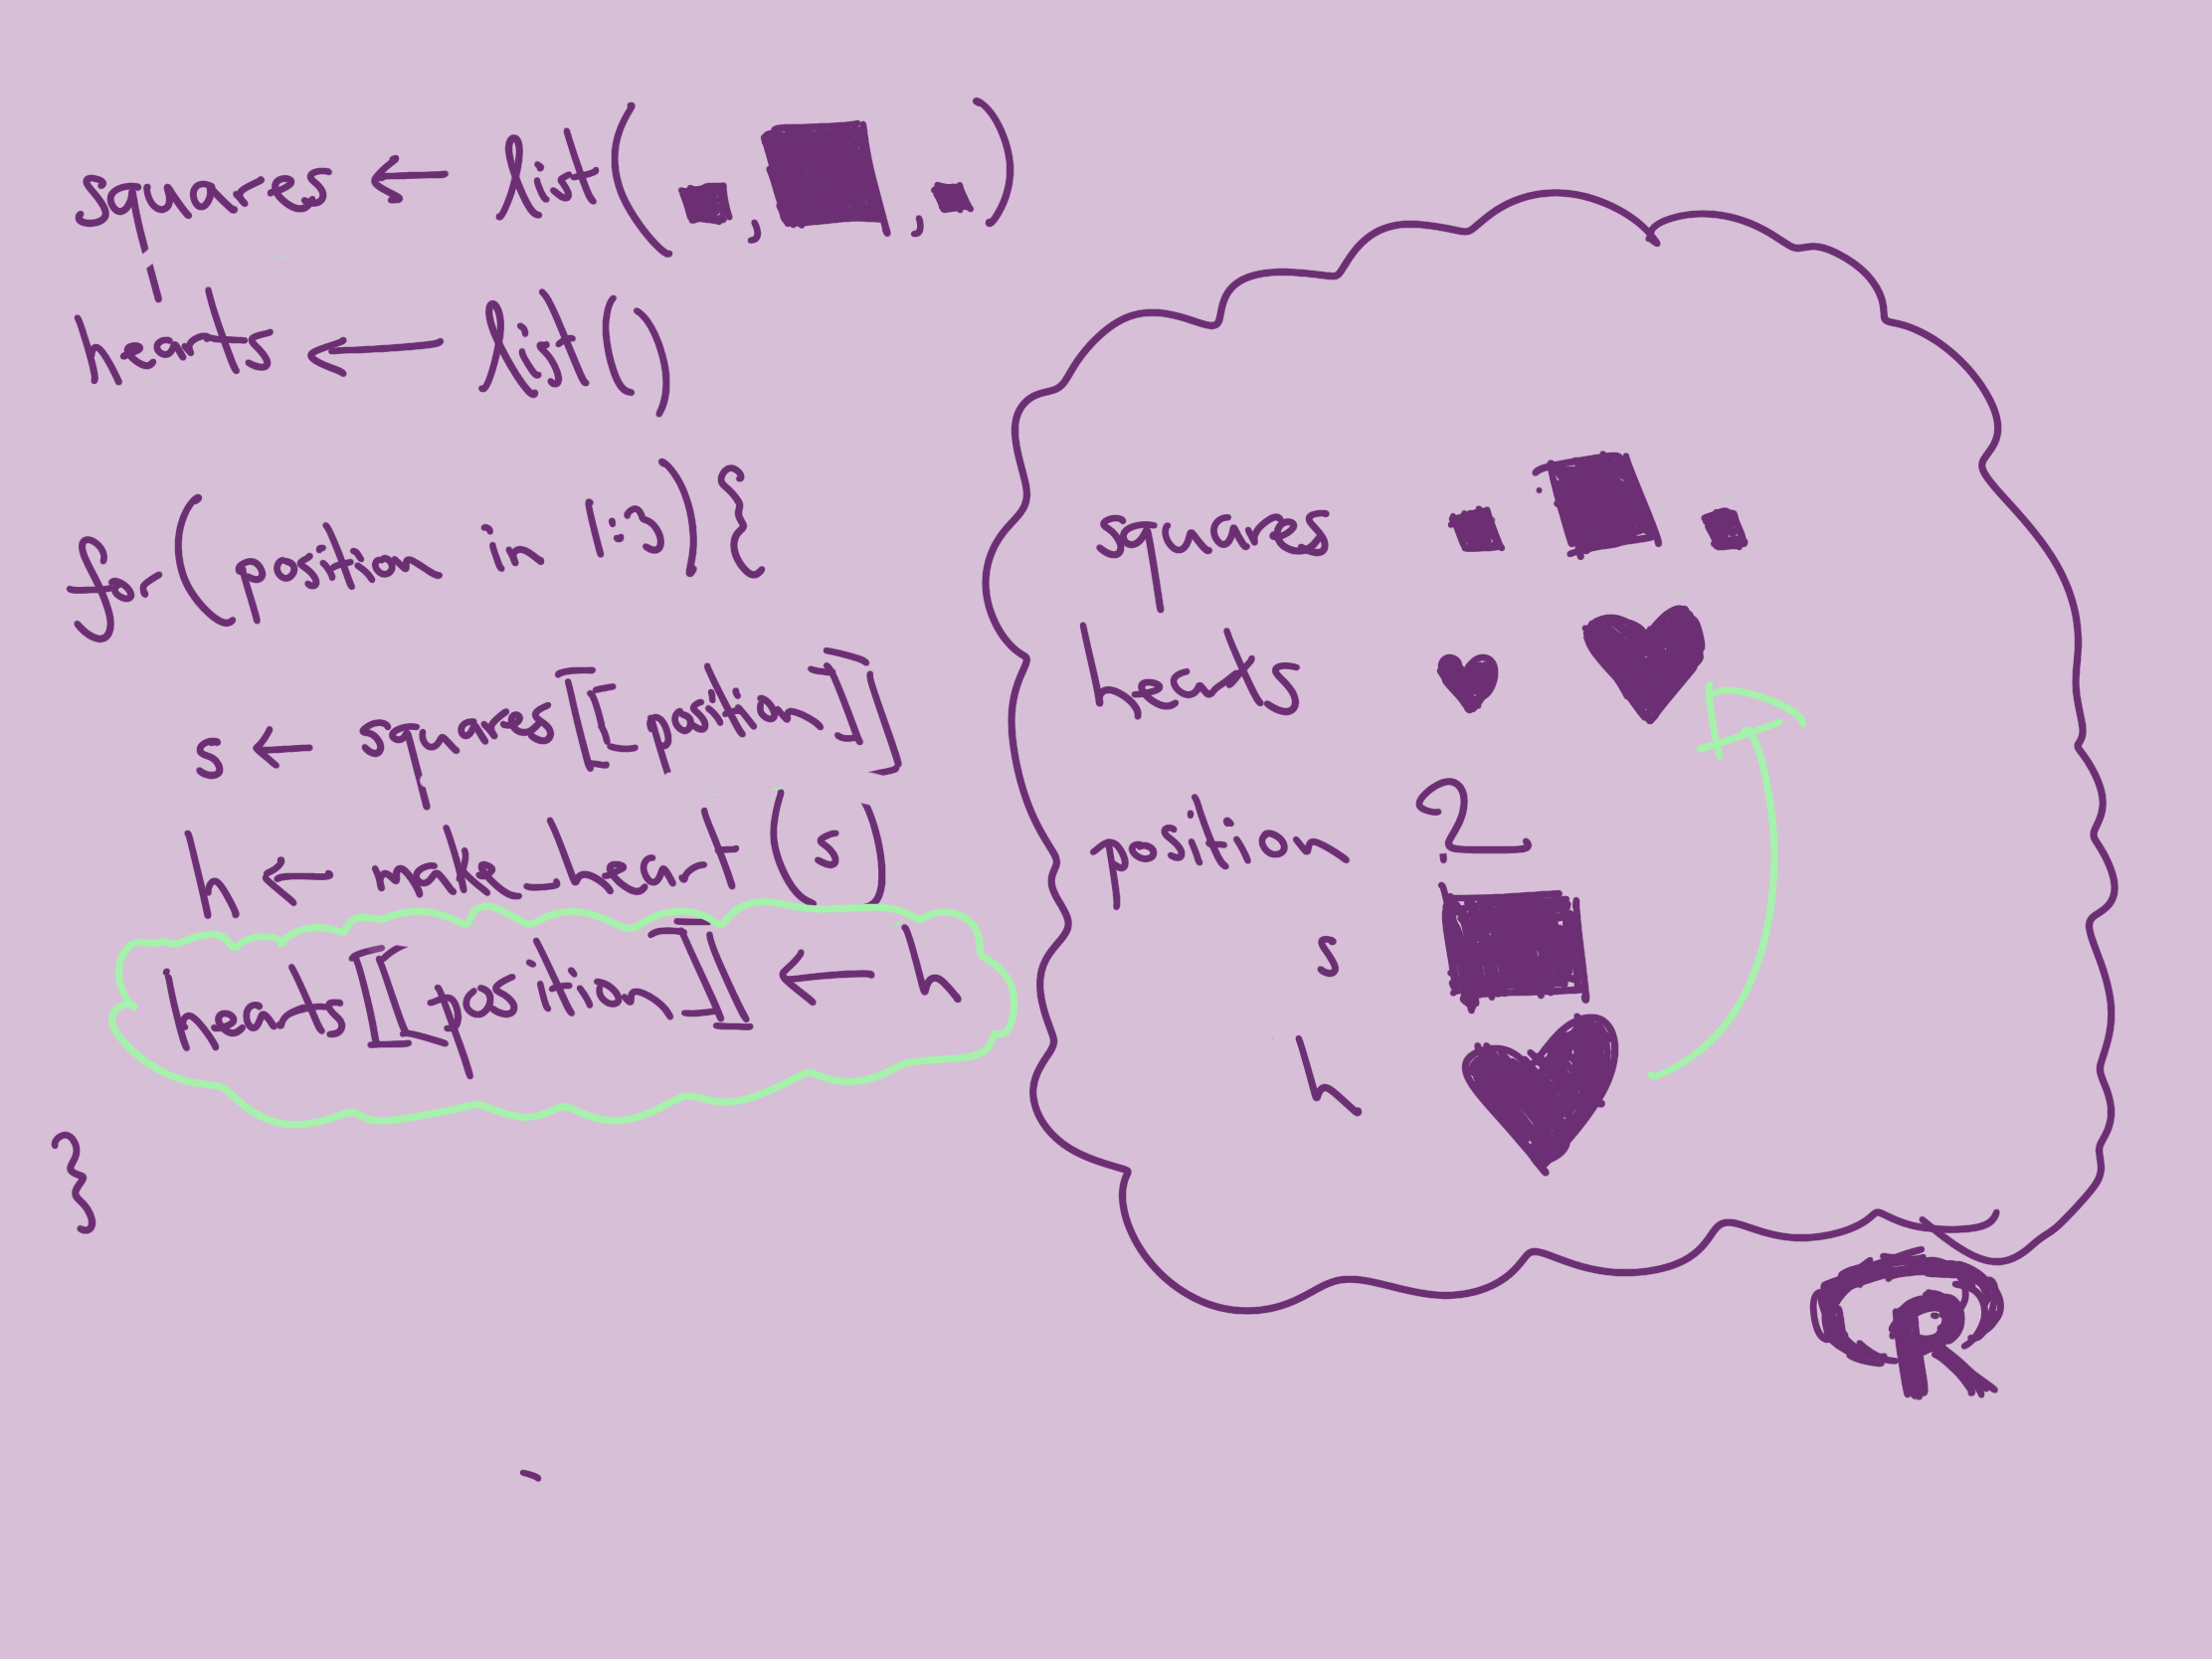 squares ← list(■, ■, ■)
hearts ← list()
for(position in 1:3){
s ← squares[[position]]
h ← make_heart(s)
hearts[[position]] ← h
}
squares ■ ■ ■
hearts ♥ ♥
position 2
s ■
h ♥
R